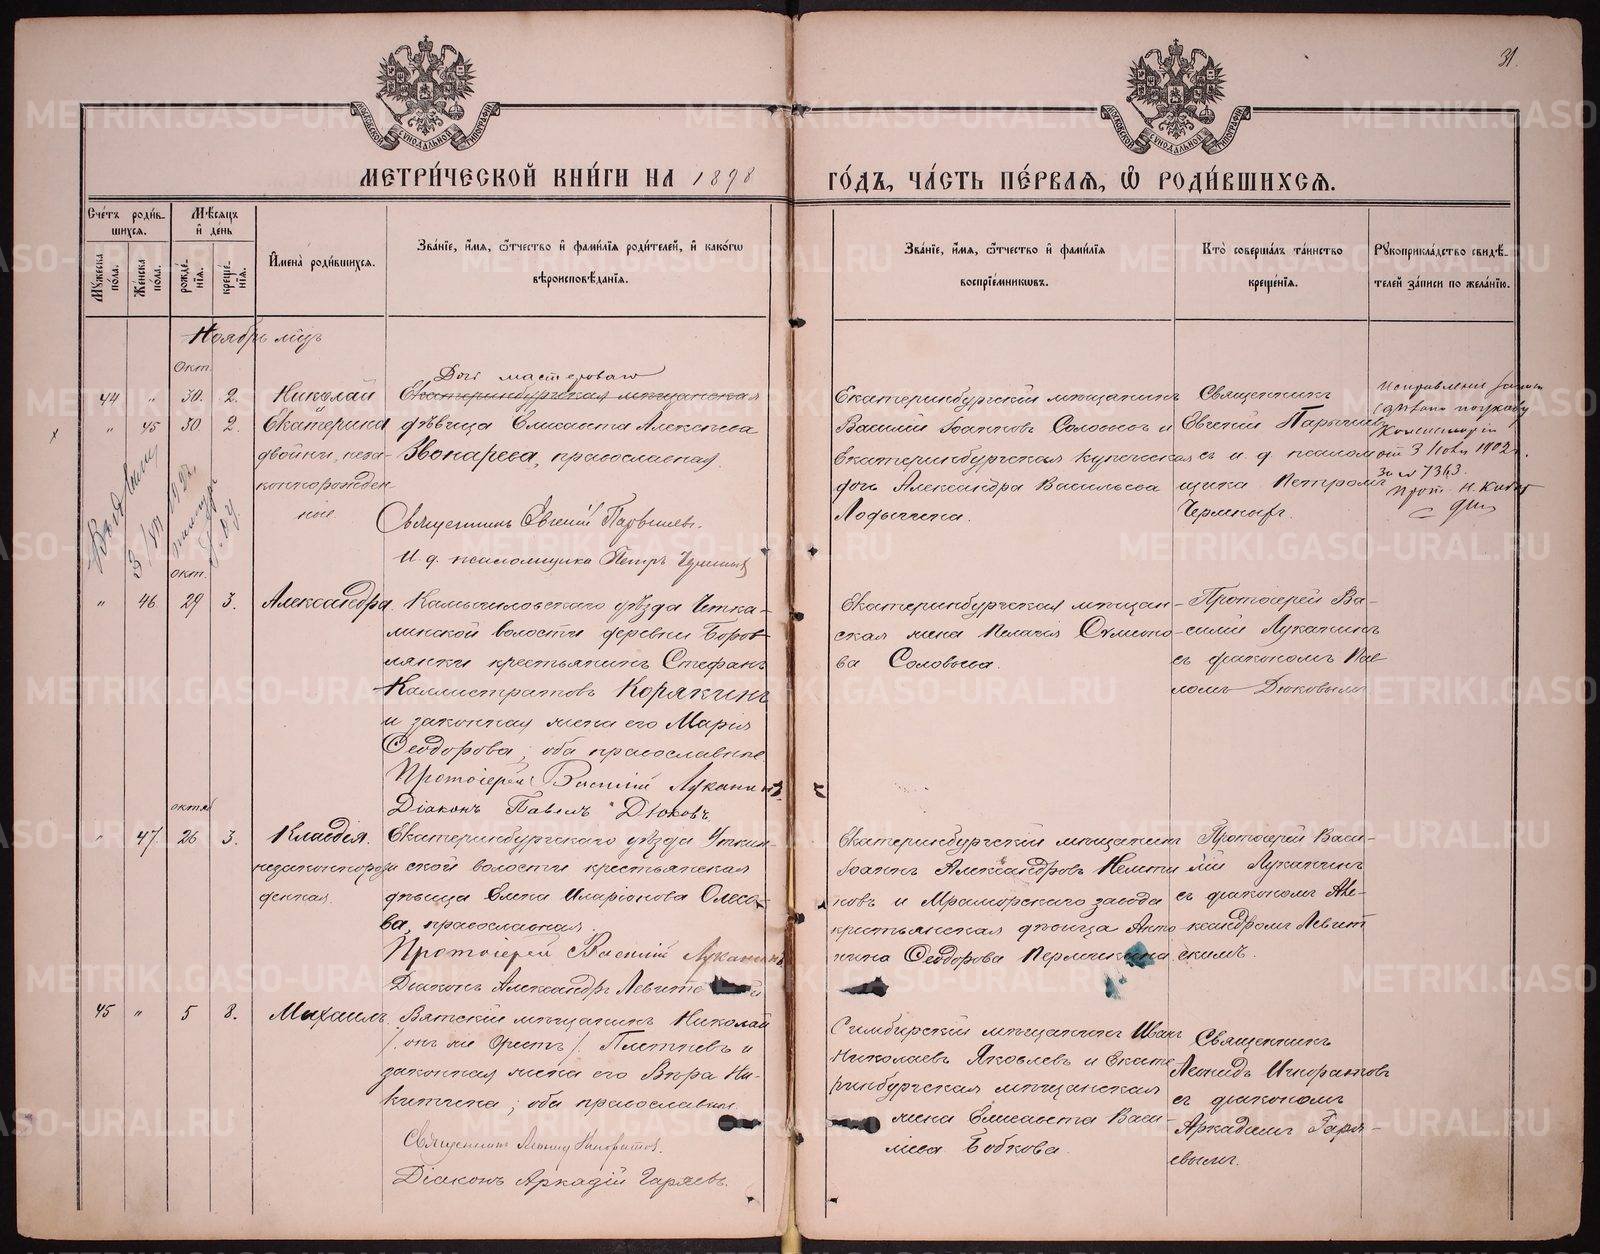 31.
МЕТРИ́ЧЕСКОЙ КНИ́ГИ НА 1898
ГО́ДЪ, ЧА́СТЬ ПЕ́РВАЯ, Ѽ РОДИ́ВШИХСЯ.
Сче́тъ роди́в-
шихся.
Мѣ́сяцъ
и҆ де́нь
Мꙋ́жеска по́ла.
Же́нска по́ла.
рожде́нїѧ.
креще́нїѧ.
И҆мена̀ роди́вшихсѧ.
Зва́нїе, и҆́мѧ, ѻ҆́тчество и҆ фами́лїѧ роди́телей, и҆ како́гѡ
вѣроисповѣ́данїѧ.
Зва́нїе, и҆́мѧ, ѻ҆́тчество и҆ фами́лїѧ
воспрїе́мникѡвъ.
Кто̀ соверша́лъ та́инство
креще́нїѧ.
Рꙋкоприкла́дство свидѣ́-
телей за́писи по жела́нїю.
Ноябрь мц҃ъ
Окт.
44 " 30. 2. Николай
" 45 30. 2. Екатерина
двойни, неза-
конорожден
ные.
Дочь мастероваго
Екатеринбургская мѣщанская
дѣвица Елисавета Алексѣева
Звонарева, православная.
Священникъ Евгеній Парышевъ.
И. д. псаломщика Петръ
Екатеринбургскій мѣщанинъ
Василій Іоанновъ Соловьевъ и
Екатеринбургская купеческая
дочь Александра Васильева
Лодыгина.
Священникъ
Евгеній Парышевъ
съ и. д. псалом
щика Петромъ
Исправленіе записи
сдѣлано по указу
Консисторіи
отъ 3 1902 г.
за № 7363.
Прот. Н.
окт.
" 46 29 3. Александра
Камышловскаго уѣзда Четка-
линской волости деревни Боров-
лянки крестьянинъ Стефанъ
Каллистратовъ Корякинъ
и законная жена его Марія
Ѳеодорова; оба православные
Протоіерей Василій Луканинъ
Діаконъ Павелъ Дюковъ.
Екатеринбургская мѣщан-
ская жена Пелагія Симеоно-
ва Соловьева.
Протоіерей Ва-
силій Луканинъ
съ діакономъ Пав
ломъ Дюковымъ
октяб
" 47. 26 3. Клавдія.
незаконнорож
денная.
Екатеринбургскаго уѣзда Уткин-
ской волости крестьянская
дѣвица Елена Иларіонова Олесо-
ва, православная.
Протоіерей Василій Луканинъ
Діаконъ Александръ Левитскій
Екатеринбургскій мѣщанинъ
Іоаннъ Александровъ Немти
новъ и Мраморскаго завода
крестьянская дѣвица Анто
нина Ѳеодорова Пермикина
Протоіерей Васи-
лій Луканинъ
съ діакономъ Але-
ксандромъ Левит
скимъ.
45 " 5 8. Михаилъ
Вятскій мѣщанинъ Николай
/: онъ же Орестъ / Плетневъ и
законная жена его Вѣра Ни-
китина; оба православные
Священникъ Леонидъ Игноратовъ.
Діаконъ Аркадій Гаряевъ.
Симбирскій мѣщанинъ Иванъ
Николаевъ Яковлевъ и Екате-
ринбургская мѣщанская
жена Елисавета Васи-
льева Бобкова.
Священникъ
Леонидъ Игноратовъ
съ діакономъ
Аркадіемъ Гаря-
евымъ.